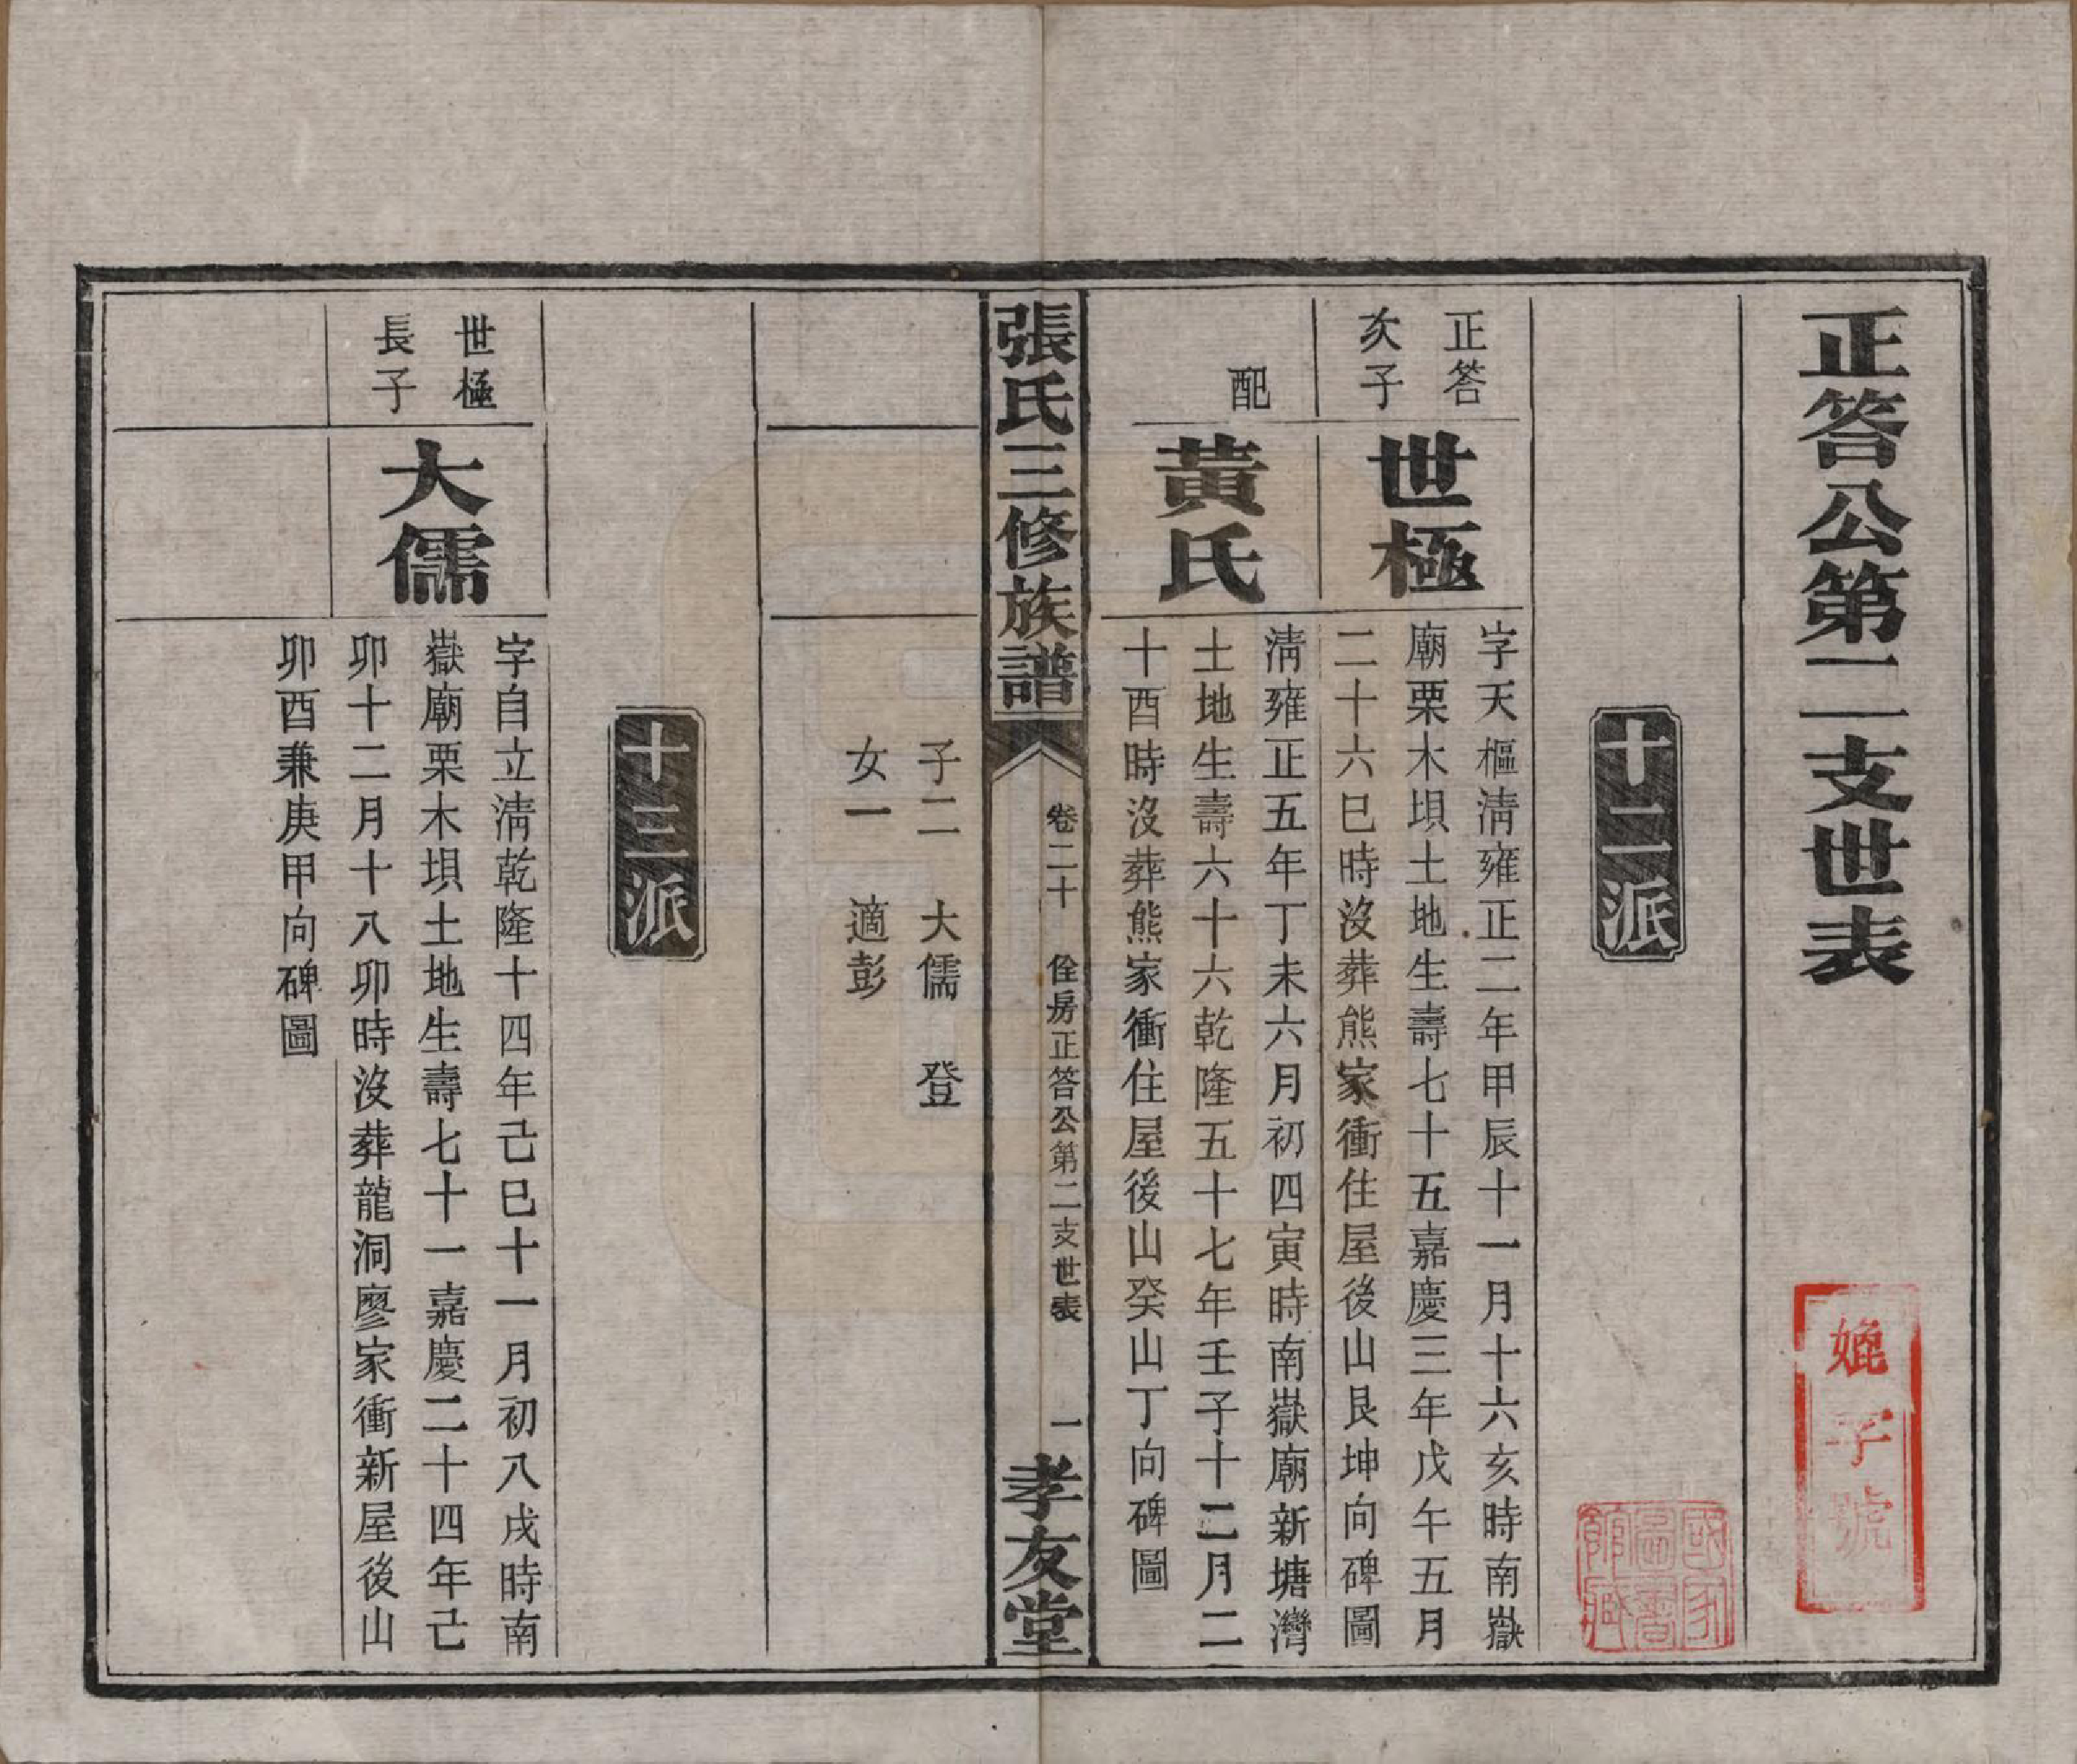 正答公第二支世表
媲子號
國家圖書館藏
十二派
正答
次子
世極
字天樞淸雍正二年甲辰十一月十六亥時南嶽
廟栗木垻土地生壽七十五嘉慶三年戊午五月
二十六巳時沒葬熊家衝住屋後山艮坤向碑圖
配
黃氏
淸雍正五年丁未六月初四寅時南嶽廟新塘灣
土地生壽六十六乾隆五十七年壬子十二月二
十酉時沒葬熊家衝住屋後山癸山丁向碑圖
張氏三修族譜
卷二十 佺房正答公第二支世表
一
孝友堂
子二 大儒 登
女一 適彭
十三派
世極
長子
大儒
字自立淸乾隆十四年己巳十一月初八戌時南
嶽廟栗木垻土地生壽七十一嘉慶二十四年己
卯十二月十八卯時沒葬龍洞廖家衝新屋後山
卯酉兼庚甲向碑圖